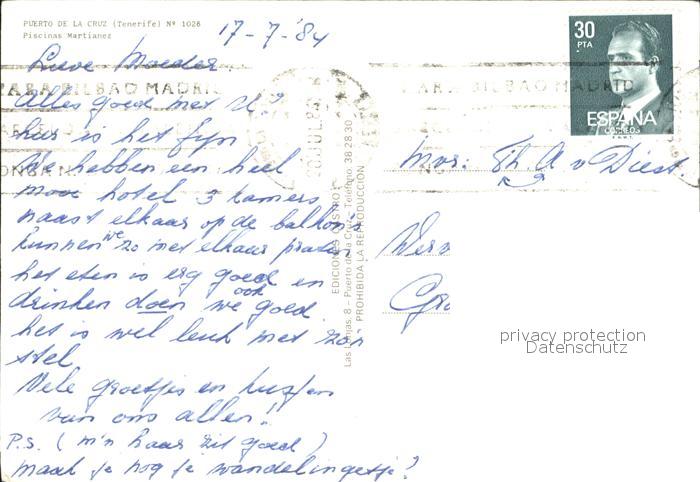 PUERTO DE LA CRUZ (Tenerife) Nº 1026
Piscinas Martianez
17-7-'84
Lieve Moeder.
Alles goed met U.?
hier is het fijn
We hebben een heel
mooi hotel 3 kamers
naast elkaar op de balkons
kunnen we zo met elkaar praten
het eten is erg goed en
drinken doen we ook goed
het is wel leuk met zo'n
stel
Vele groetjes en kusjes
van ons allen!!
P.S. (m'n haar zit goed)
maak je nog je wandelingetje?
EDICIONES
Las Lonjas, 8 - Puerto de la Cruz - Teléfono, 38 28 30
PROHIBIDA LA REPRODUCCION
PARA BILBAO MADRID
PARA BILBAO MADRID
20 JUL 84
30
PTA
ESPAÑA
CORREOS
F.N.M.T.
Mvr. Th. A v Diest.
privacy protection
Datenschutz